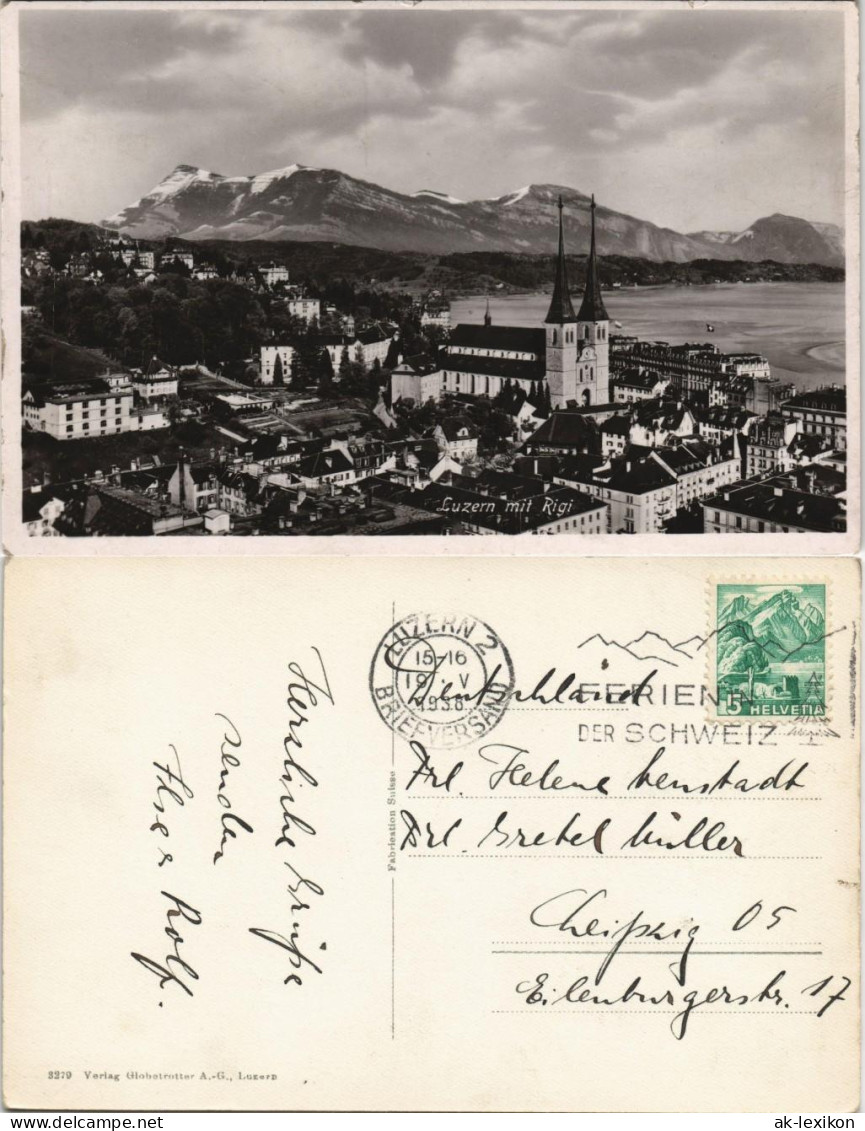 Luzern mit Rigi
LUZERN 2
15-16
19. V
1938
BRIEFVERSAND
FERIEN IN
DER SCHWEIZ
5 HELVETIA
Deutschland
Frl. Helene
Frl. Gretel Müller
Leipzig 05
Eilenburgerstr. 17
Fabrication Suisse
Herzliche Grüße
senden
Ilse & Rolf.
3279 Verlag Globetrotter A.-G., Luzern
ak-lexikon